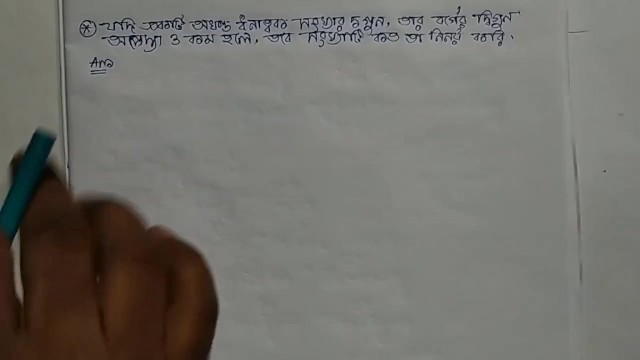 যদি একটি অখণ্ড ধনাত্মক সংখ্যার ৫ গুন, তার বর্গের দ্বিগুন
অপেক্ষা ৩ কম হলে, তবে সংখ্যাটি কত তা নির্ণয় করি।
Ans